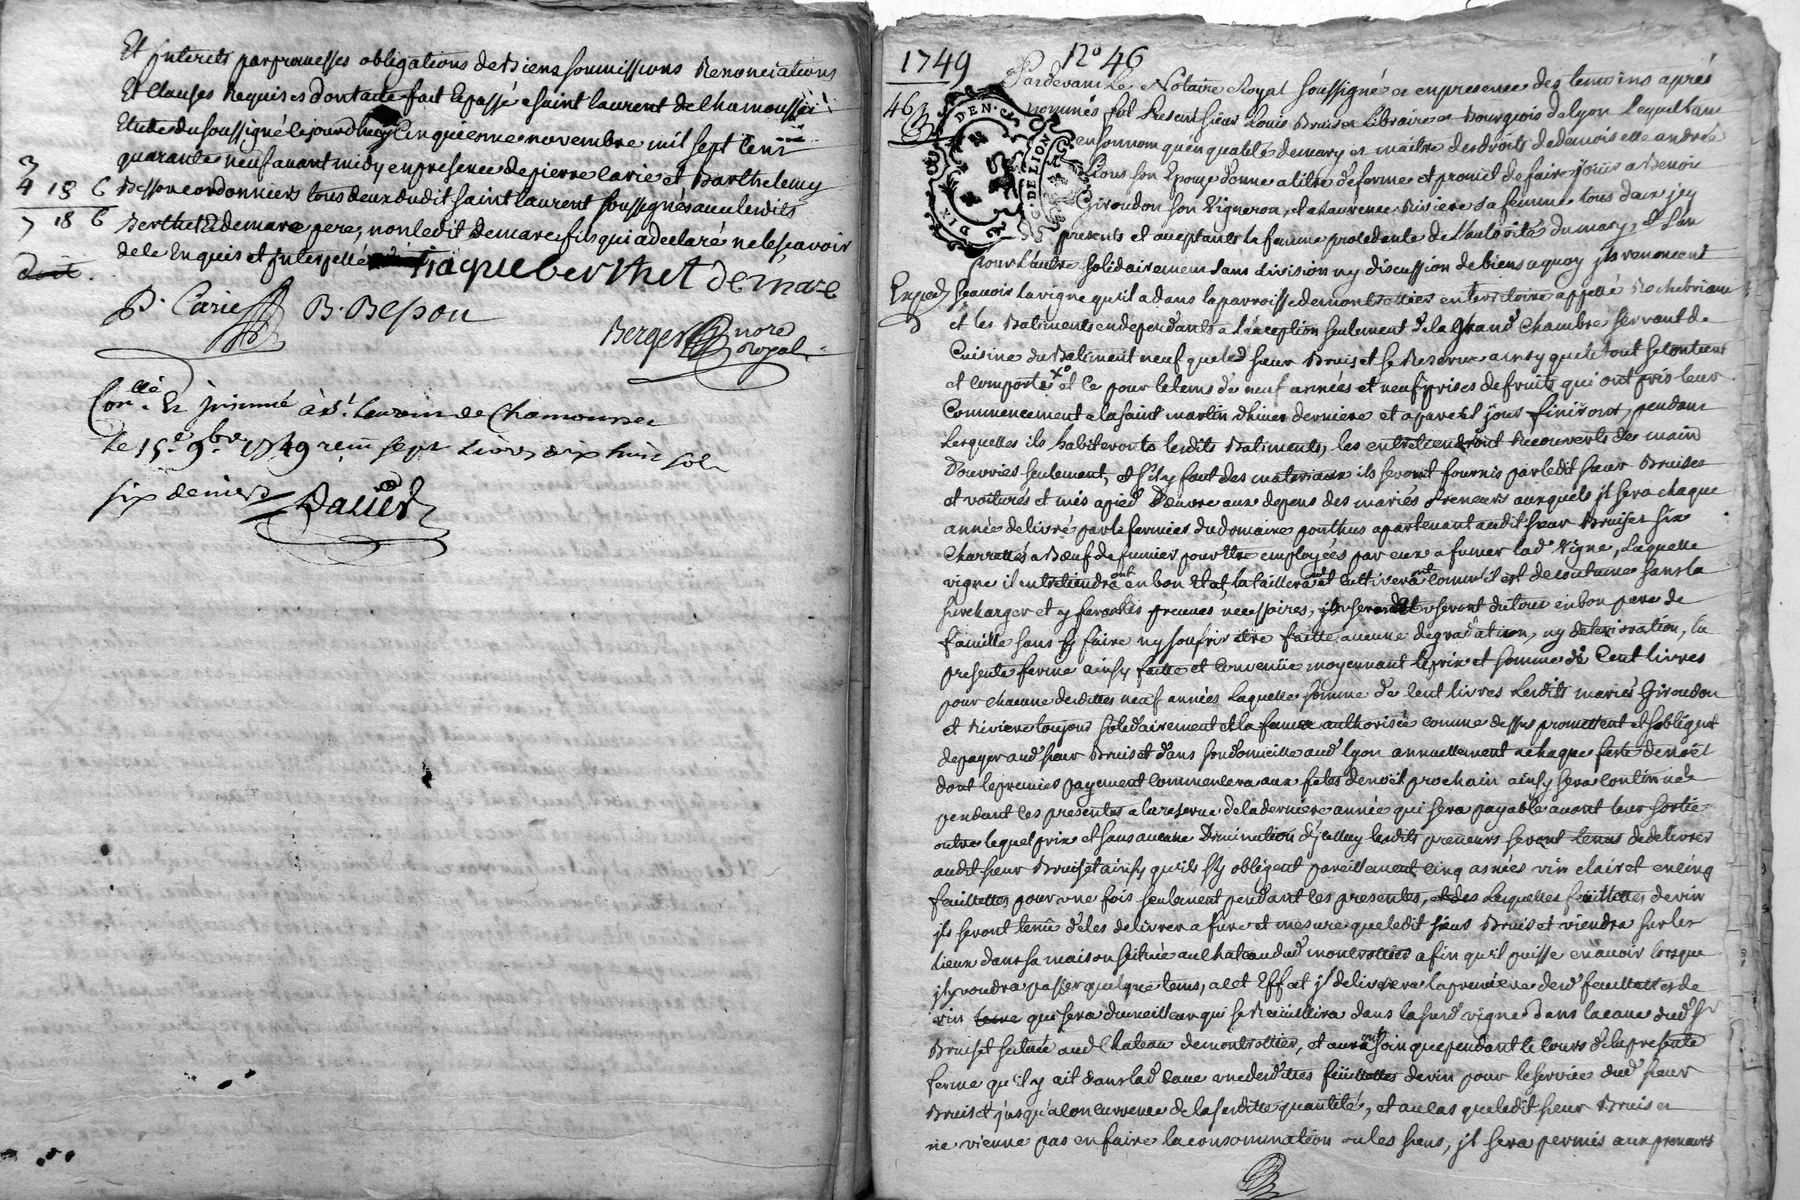 Et Interets par promesses obligations de Biens soumissions Renonciations
Et Clauses Requises dont acte fait Et passé a saint laurent de Chamousset
Etude du soussigné le jourdhuy Cinquieme novembre mil sept cent
quarante neuf avant midy en presence de pierre Carie et Barthelemy
Besson cordonniers tous deux dudit saint laurent soussignés avec lesdits
Berthet Et demare pere, non ledit demare fils qui a declaré ne le sçavoir
de ce Enquis et Interpellé
3
4 15 6
7 18 6
Jaque berthet demare
P. Carie B. Beson
Berger nore
Royal
Con.llé Et Insinué à St. Laurent de Chamousset
le 15e. 9bre. 1749 sept Livres dix huit sols
six deniers
1749 No 46
46
DEN. C
G. DE LION
DIX
Pardevant Le Notaire Royal soussigné et en presence des temoins aprés
nommés fut Present sieur Louis Bruiset Libraire et Bourgeois de lyon lequel tant
en son nom qu'en qualité de mary et maitre des droits de demoiselle andrée
son Epouze donne a titre de ferme et promet de faire jouir a Benoit
Giroudon son Vigneron, et a Laurence Riviere sa femme tous deux jcy
presents et acceptants la femme procedente de l'autorité du mary, et l'un
pour l'autre solidairement sans division ny discussion de biens a quoy jls renoncent
Exped.
sçavoir la vigne qu'il a dans la parroisse de montrottier en territoire appellé Rochebrune
et les Batiments en dependants a l'exception seulement de la grand'e Chambre servant de
Cuisine du Batiment neuf que led. sieur Bruiset se Reserve ainsy que le tout se contient
et comporte et ce pour le tems de neuf années et neuf prises de fruits qui ont pris leur
Commencement a la saint martin d'hiver derniere et a pareil jour finiront, pendant
lesquelles ils habiteront lesdits Batiments, les entretiendront Recouverts de main
D'ouvries seulement, et s'il y faut des materiaux ils seront fournis par ledit sieur Bruiset
et voiturés et mis a pied d'oeuvre aux depens des mariés Preneurs auxquels jl sera chaque
année delivré par le fermier du domaine ponthus apartenant audit sieur Bruiset six
Charretés a Boeuf de fumier pour Etre employées par eux a fumer lad. Vigne, Laquelle
vigne il entretiendront en bon Etat, la tailleront et cultiveront comm'il est de coutume sans la
surcharger et y feront les preuves necessaires, et useront du tout en bon pere de
famille sans sy faire ny soufrir etre faitte aucune degradation, ny deterioration, la
presente ferme ainsy faitte et convenüe moyennant le prix et somme de Cent livres
pour chacune desdittes neuf années Laquelle somme de cent livres lesdits mariés Giroudon
et Riviere toujours solidairement et la femme authorisée comme dessus promettent et s'obligent
de payer aud. sieur Bruiset dans son domicille aud. lyon annuellement a chaque fete de noël
dont le premier payement commencera aux fetes de noël prochain ainsy sera continué
pendant les presentes a la reserve de la derniere année qui sera payable avant leur sortie
outre lequel prix et sans aucune Diminution d'jcelluy lesdits preneurs seront tenus de delivrer
audit sieur Bruiset ainsy qu'ils s'y obligent pareillement cinq asnées vin clair et en cinq
feuillettes pour une fois seulement pendant les presentes, Lesquelles feüillettes de vin
jls seront tenû de les delivrer a fure et mesure que ledit sieur Bruiset viendra sur les
lieux dans sa maison scituée au Chateau dud. montrottier afin qu'il puisse en avoir lorsque
jl y voudra passer quelque tems, a cet Effet jl delivrera la premiere desd. feuillettes de
vin qui sera du meilleur qui se Recuillira dans la susd. vigne Dans la cave dud. sr
Bruiset scituée aud. Chateau de montrottier, et auront soin que pendant le cours de la presente
ferme qu'il y ait dans lad. Cave une desdittes feüillettes de vin pour le service dud. sieur
Bruiset jusqu'a concurrence de la susditte quantité, et au cas que ledit sieur Bruiset
ne vienne pas en faire la consommation ou les siens, jl sera permis aux preneurs